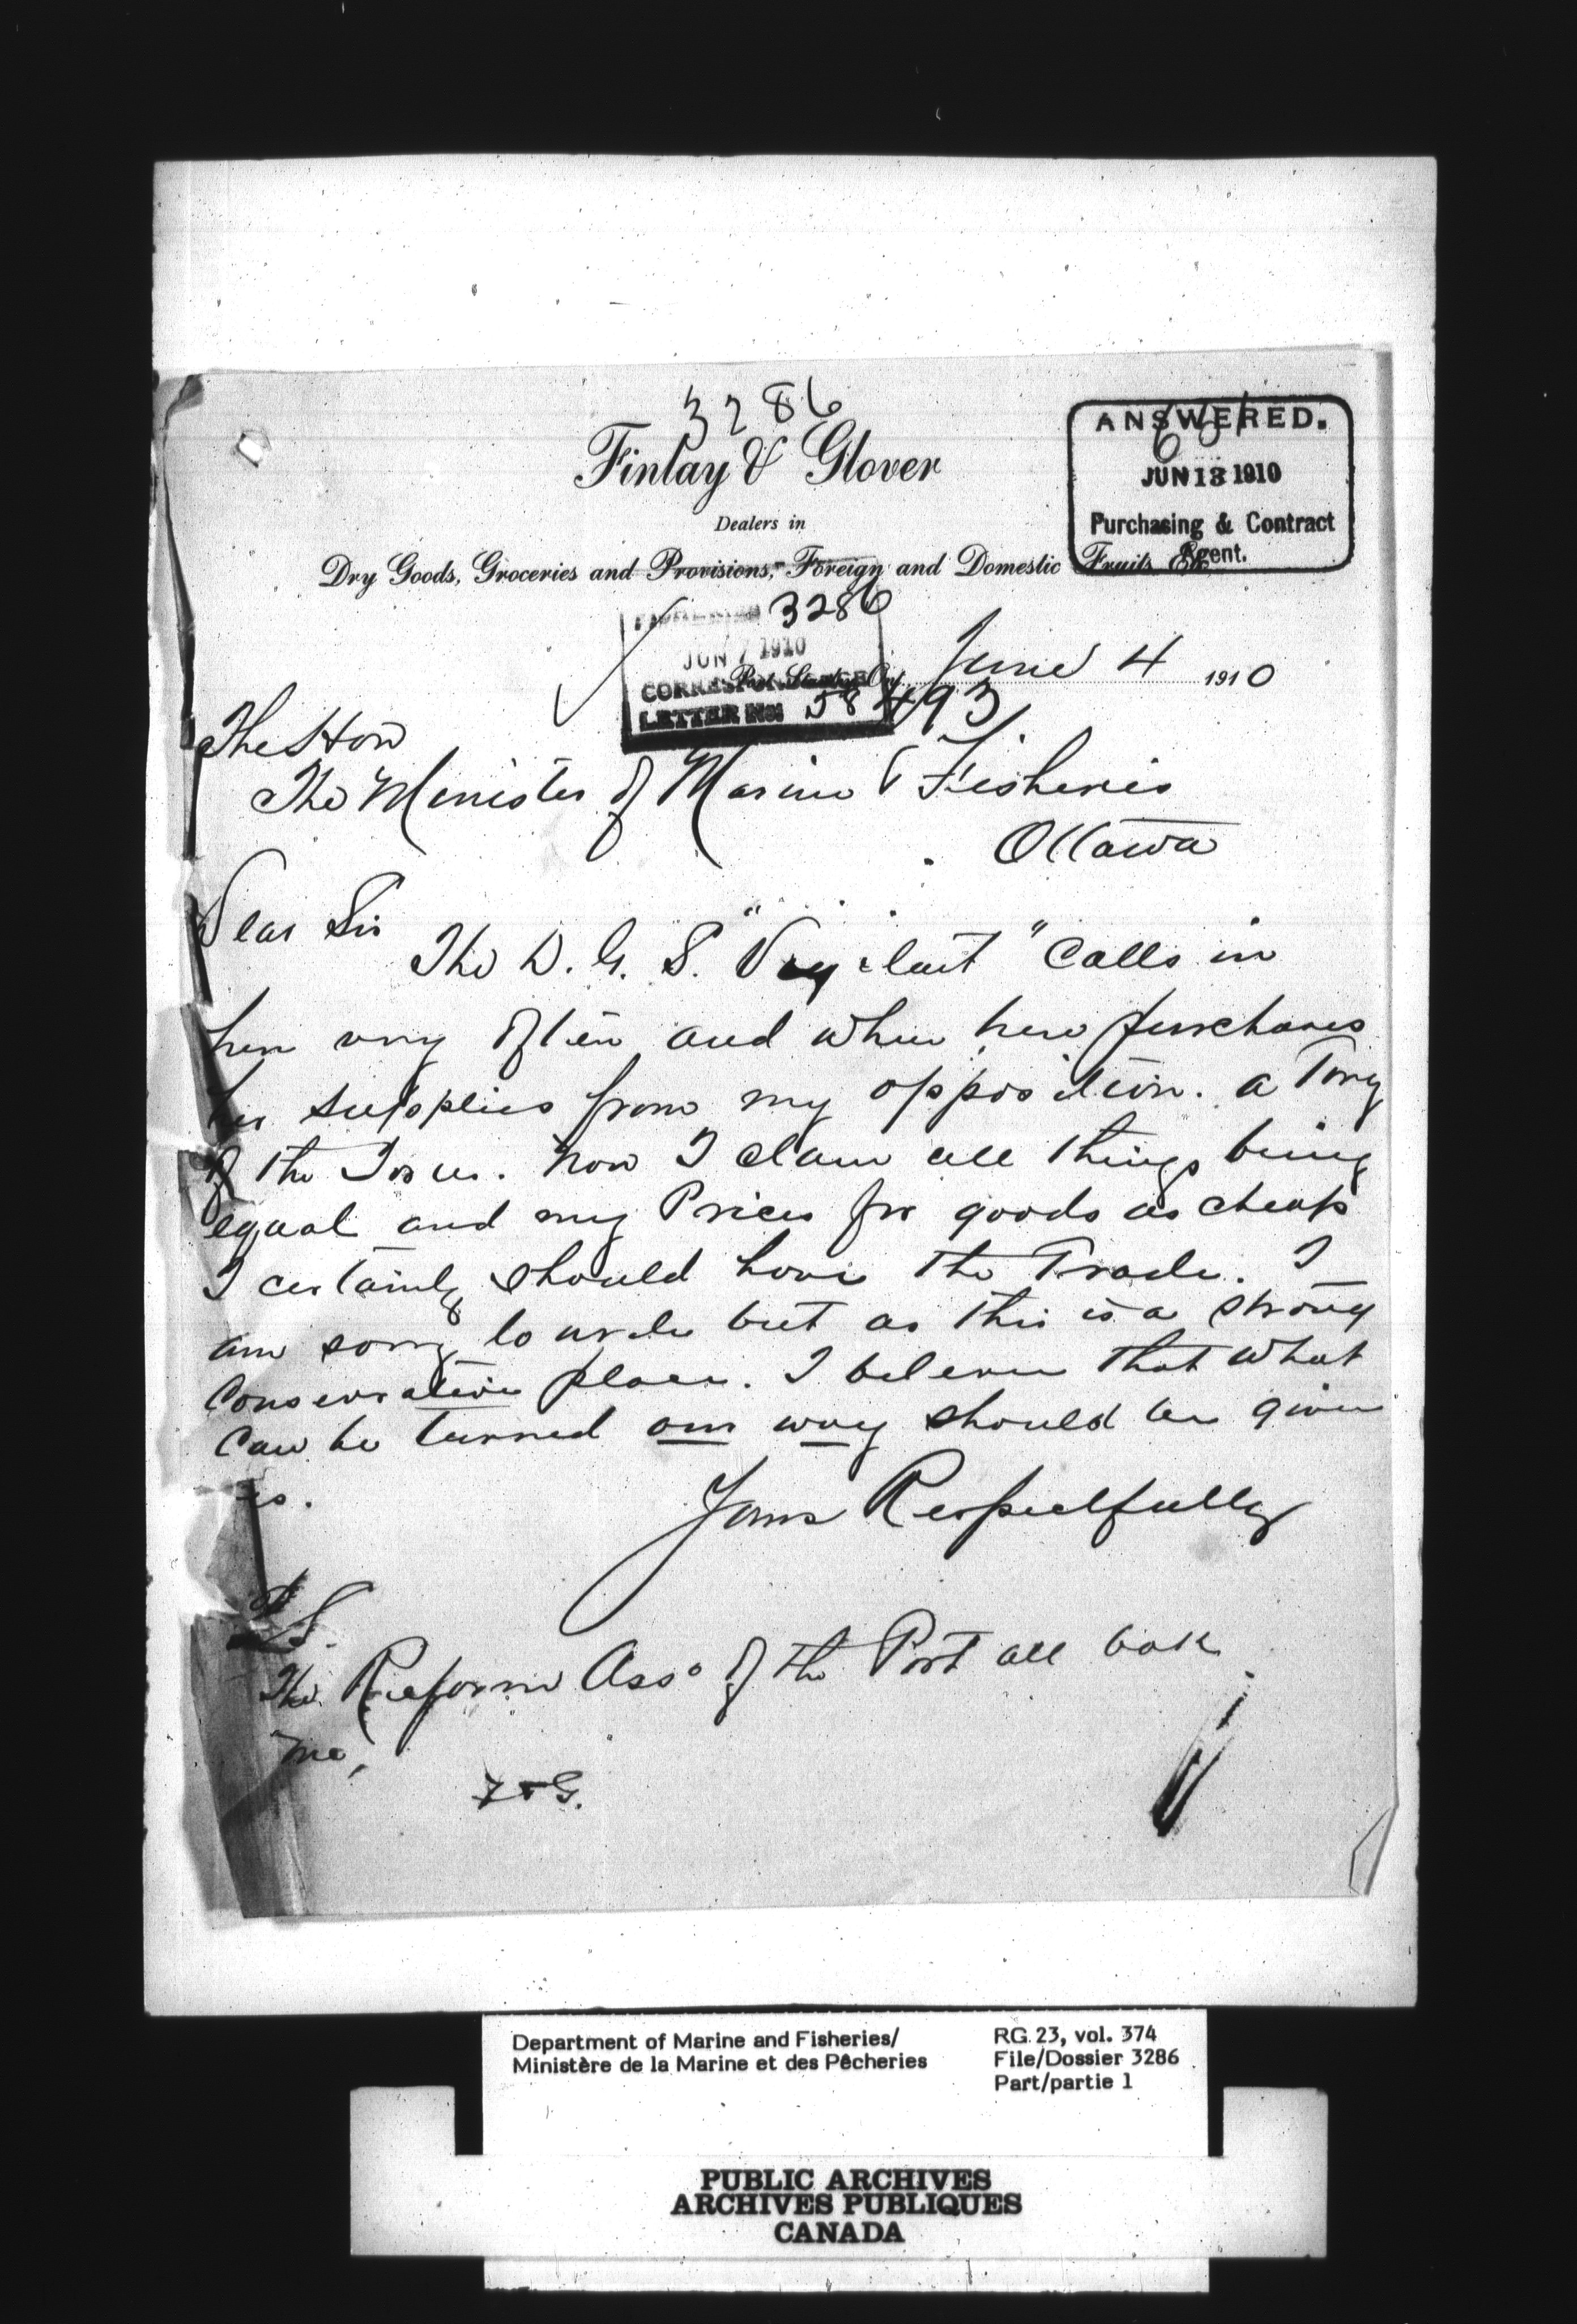 3286
Finlay & Glover
Dealers in
Dry Goods, Groceries and Provisions, Foreign and Domestic Fruits Etc
ANSWERED.
JUN 13 1910
Purchasing & Contract
Agent.
FISHERIES 3286
JUN 7 1910
CORRESPONDENCE
LETTER No: 58493
Port Stanley, Ont. June 4 1910
The Hon
The Minister of Marine & Fisheries
Ottawa
Dear Sir
The D. G. S. "Vigilant" Calls in
here very often and when here purchases
her supplies from my opposition. a Tory
of the Tories. Now I claim all things being
equal and my Prices for goods as cheap
I certainly should have the Trade. I
am sorry to write but as this is a strong
Conservative place. I believe that what
Can be turned our way should be given
us.
Yours Respectfully
P.S.
The Reform Asso of the Port all back
me,
F & G.
Department of Marine and Fisheries/
Ministère de la Marine et des Pêcheries
RG 23, vol. 374
File/Dossier 3286
Part/partie 1
PUBLIC ARCHIVES
ARCHIVES PUBLIQUES
CANADA